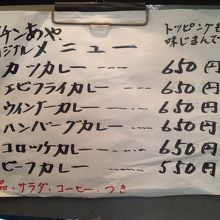 ケンあや トッピングも
ジナル メニュー 味じまんで
カツカレー 650円
エビフライカレー 650円
ウインナーカレー 650円
ハンバーグカレー 650円
コロッケカレー 650円
ビーフカレー 550円
品・サラダ・コーヒー・つき